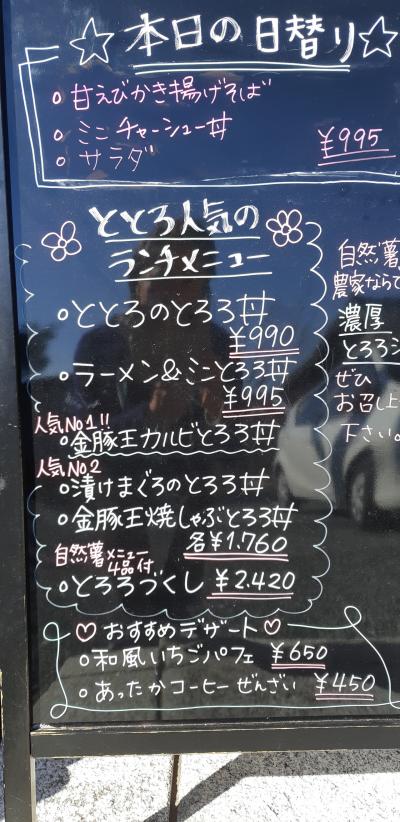 ☆本日の日替り☆
○甘えびかき揚げそば
○ミニチャーシュー丼
○サラダ
¥995
ととろ人気の
ランチメニュー
○ととろのとろろ丼
¥990
○ラーメン&ミニとろろ丼
¥995
人気No1!!
○金豚王カルビとろろ丼
人気No.2
○漬けまぐろのとろろ丼
○金豚王焼しゃぶとろろ丼
各¥1.760
自然薯メニュー
4品付
○とろろづくし ¥2.420
♡おすすめデザート♡
○和風いちごパフェ ¥650
○あったかコーヒーぜんざい ¥450
自然薯
農家ならで
濃厚
とろろ
ぜひ
お召し上
下さい。